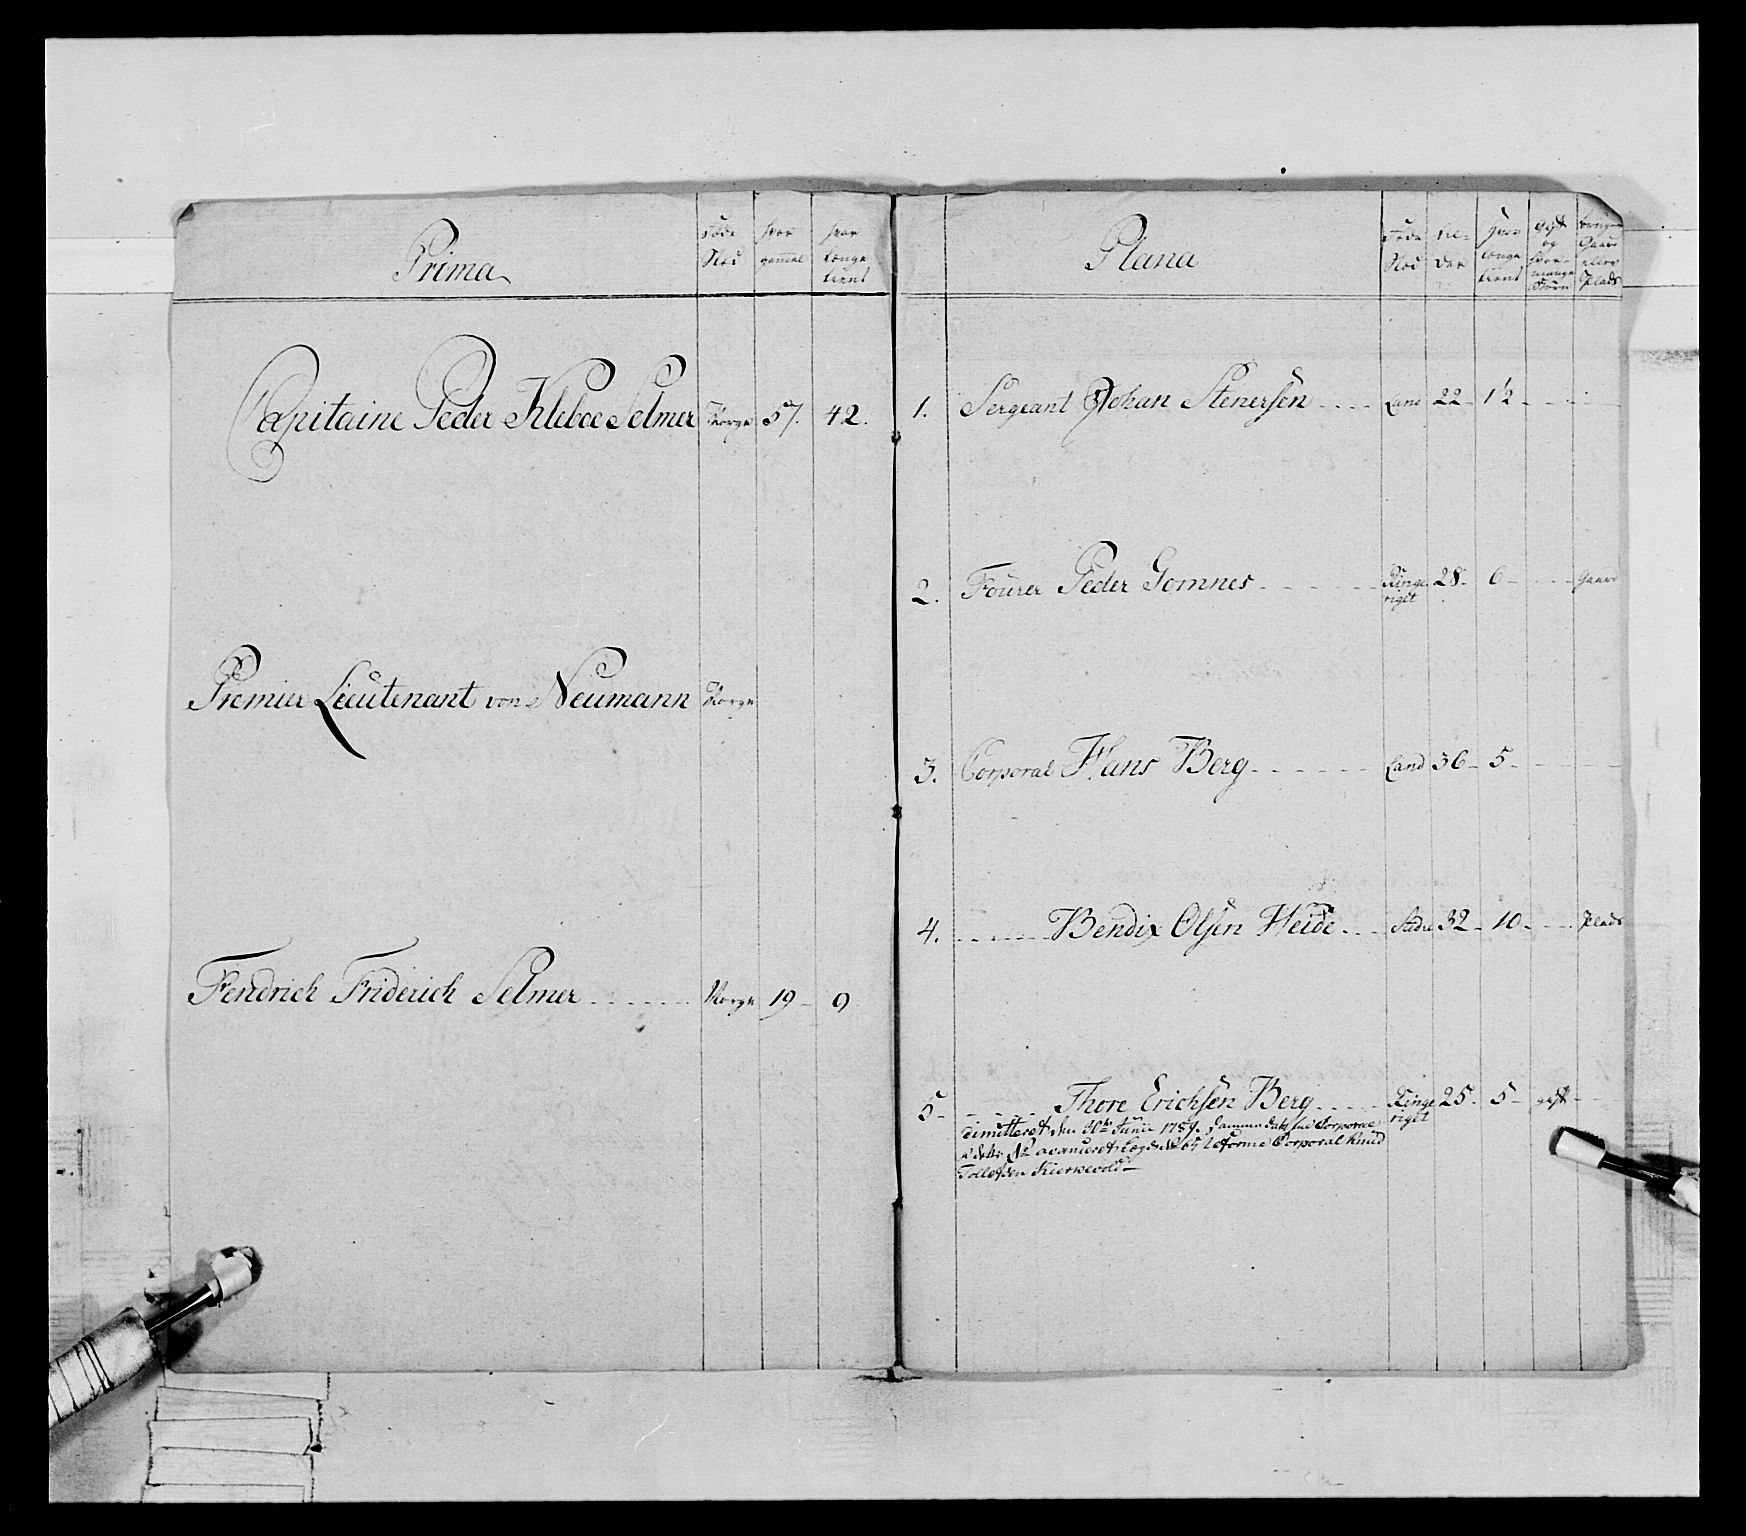 Prima
Føde Sted
hvor gammel
hvor længe tient
Capitaine Peder Kleboe Selmer Norge 57. 42.
Premier Lieutenant von Neumann Norge
Fendrich Friderich Selmer Norge 19 9
Plana
Føde Sted
Al-der
Hvor længe tient
Gift og hvor mange Børn
Gaard eller Plads
1. Sergeant Johan Stenersen Land 22 12
2. Fourer Peder Gomnes Ringe 28 6 Gaard
riget
3. Corporal Hans Berg Land 36 5
4. Bendix Olsen Heide 32 10 Plads
5 Thore Erichsen Berg Ringe 25 5 gift
riget
dimitteret den 30te Junii 1789. Samme Dato Corporal
avanceret Lægd No 65 Corporal Knud
Tollefsen Kierkevold